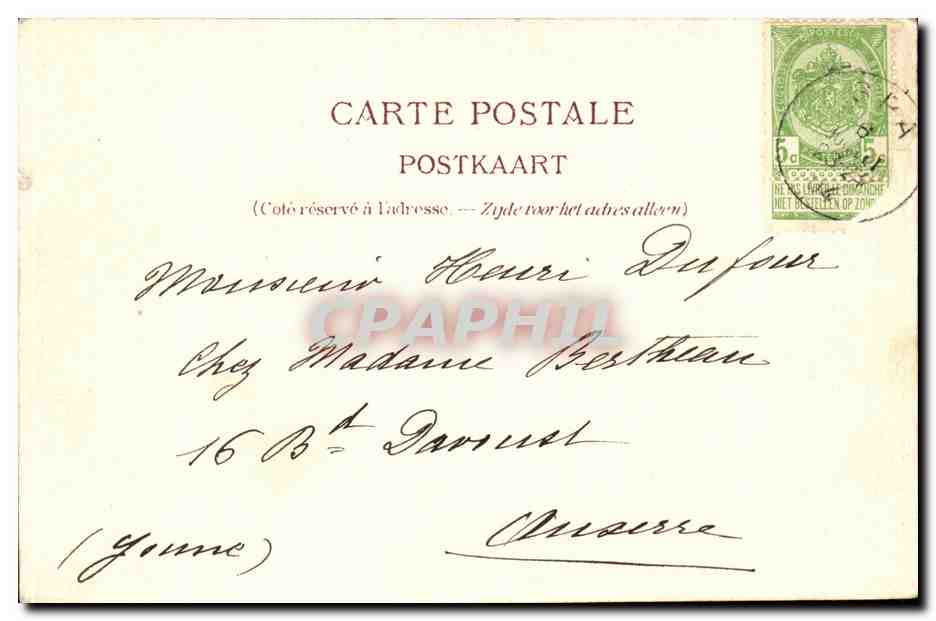 POSTES
5c 5c
NE PAS LIVRER LE DIMANCHE
NIET BESTELLEN OP ZOND
SPA
CARTE POSTALE
POSTKAART
(Coté réservé à l'adresse. — Zijde voor het adres alleen)
Monsieur Henri Dufour
CPAPHIL
Chez Madame Bertheau
16 Bd Davoust
Auxerre
(Yonne)